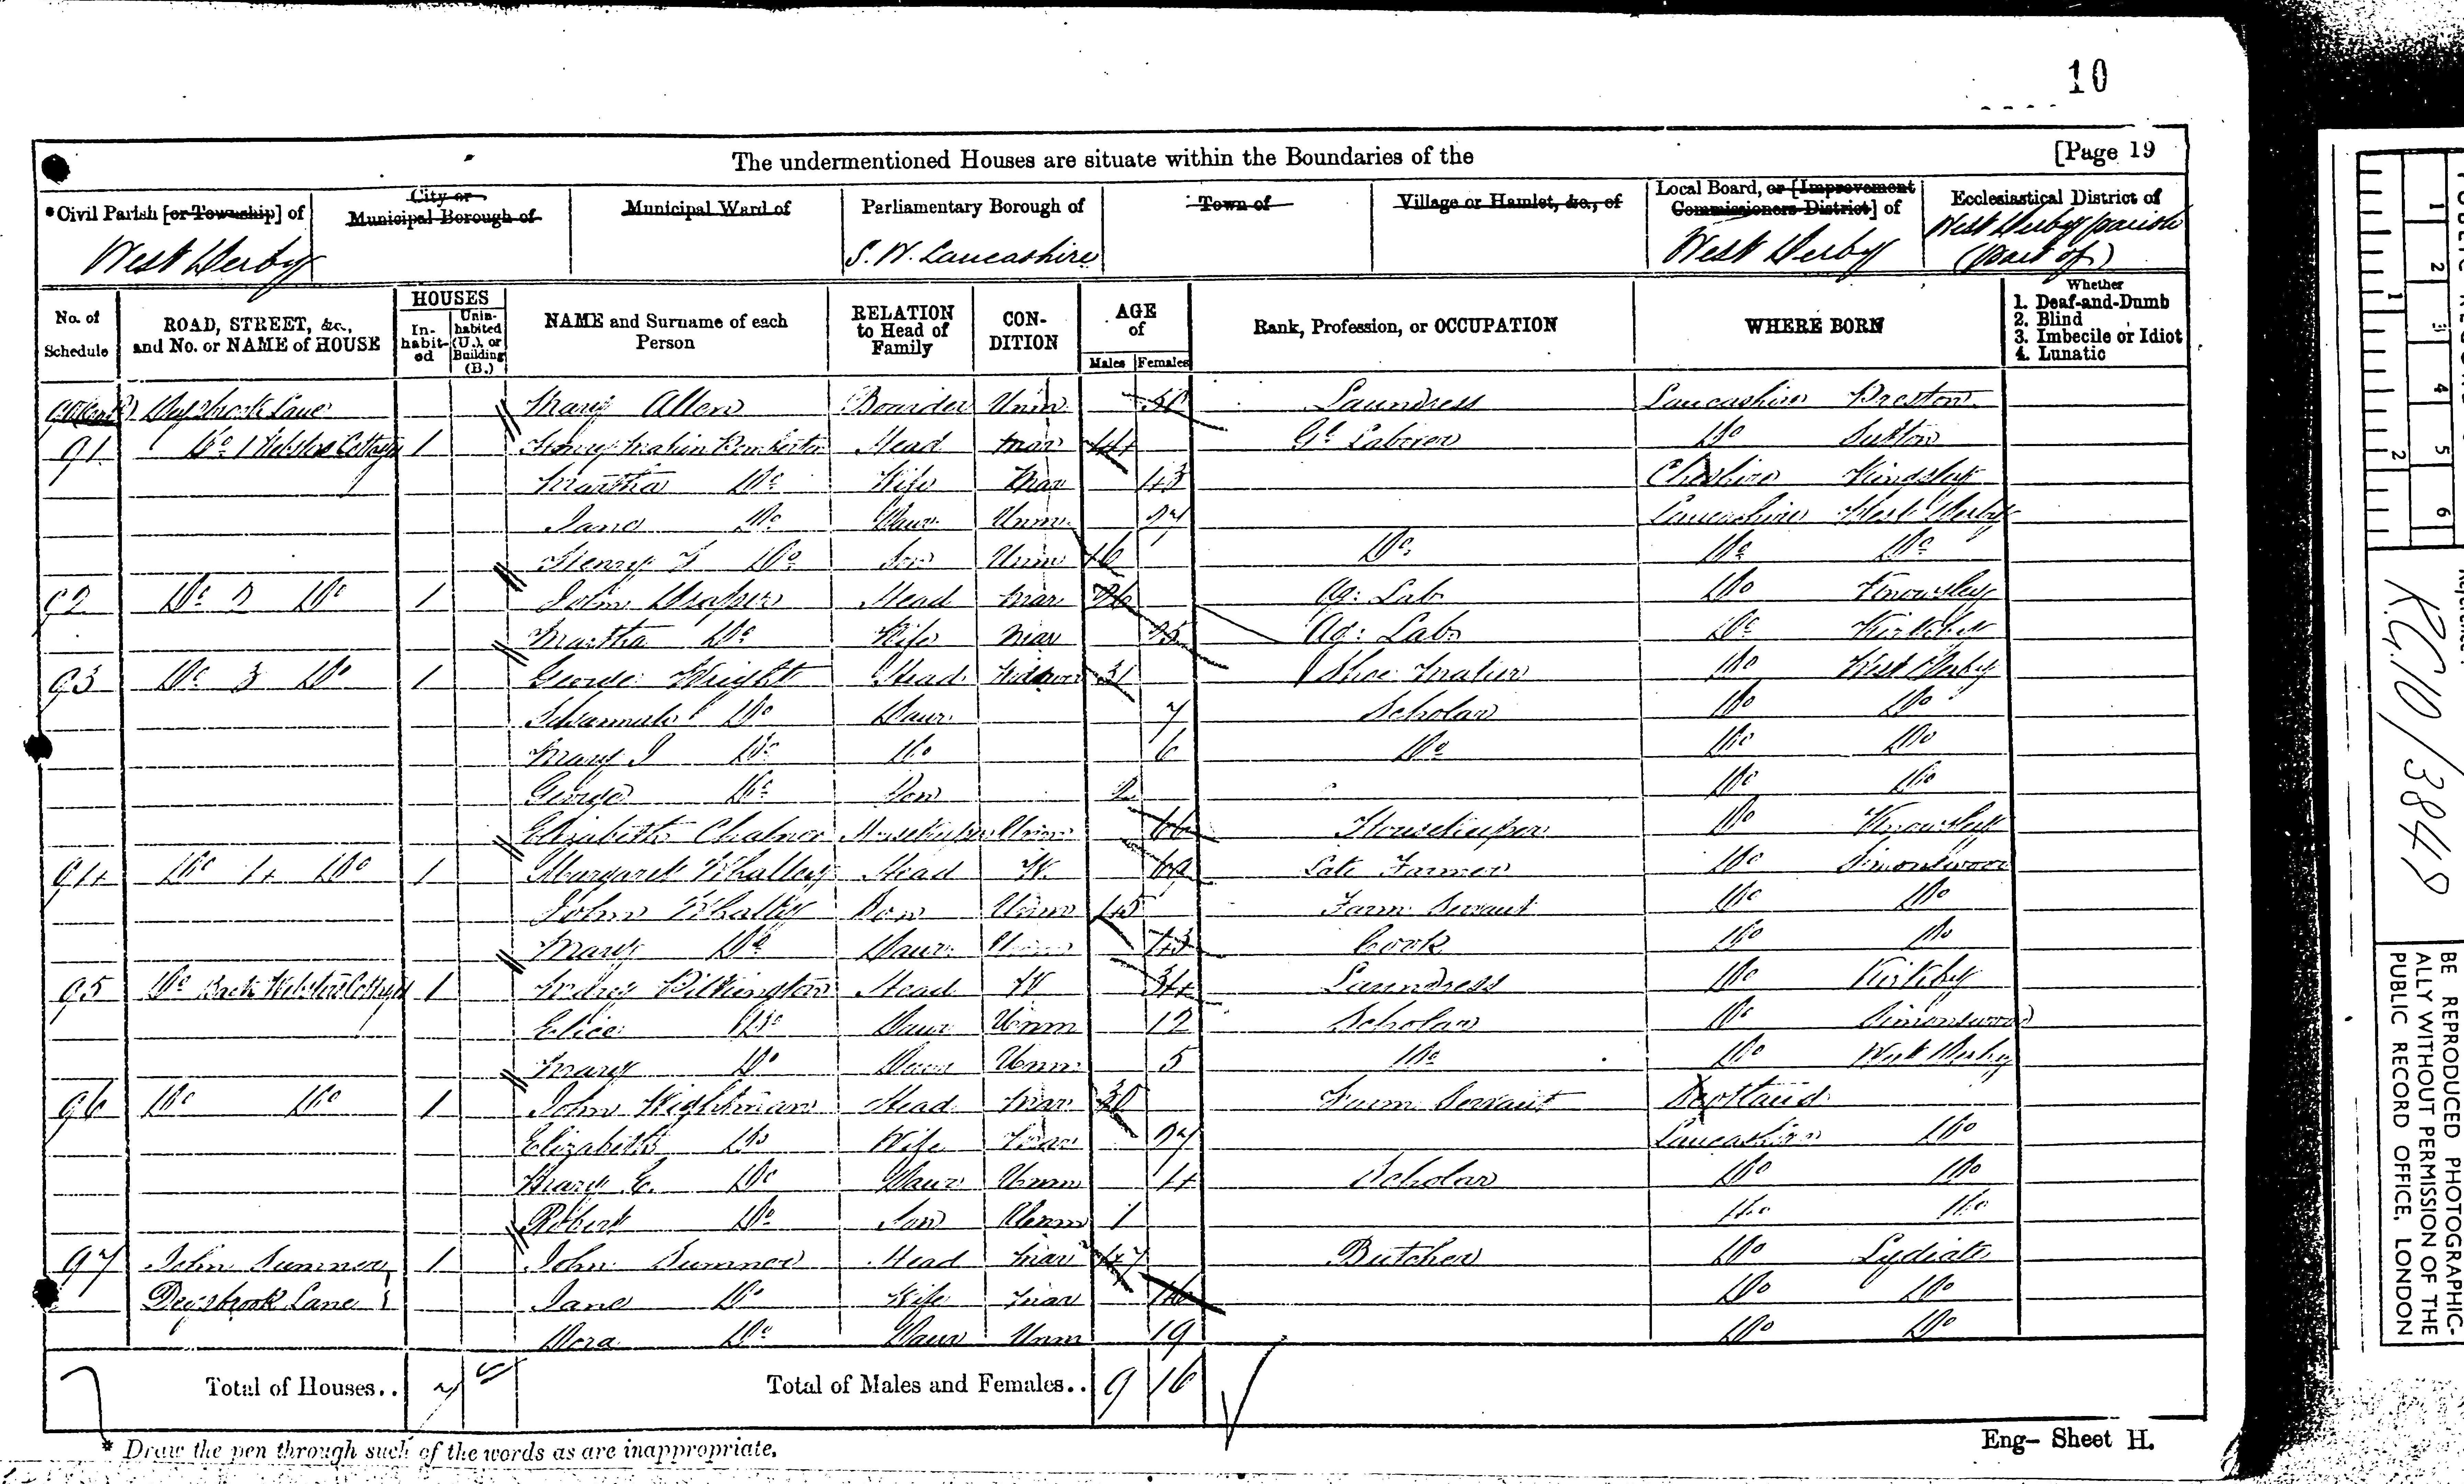 10
The undermentioned Houses are situate within the Boundaries of the [Page 19
*Civil Parish [or Township] of City or Municipal Borough of Municipal Ward of Parliamentary Borough of Town of Village or Hamlet, &c., of Local Board, or [Improvement Commissioners District] of Ecclesiastical District of
West Derby S. W. Lancashire West Derby West Derby parish (part of)
No. of Schedule ROAD, STREET, &c., and No. or NAME of HOUSE HOUSES In-habit-ed Unin-habited (U.), or Building (B.) NAME and Surname of each Person RELATION to Head of Family CON-DITION AGE of Males Females Rank, Profession, or OCCUPATION WHERE BORN Whether 1. Deaf-and-Dumb 2. Blind 3. Imbecile or Idiot 4. Lunatic
Deysbrook Lane Mary Allen Boarder Unm Laundress Lancashire Preston
91 Do 1 Websters Cottages 1 Henry Pemberton Head Mar 44 Gl Laborer Do Sutton
Martha Do Wife Mar 43 Cheshire Kingsley
Jane Do Daur Unm Lancashire West Derby
Henry Do Son Unm 16 Do Do Do
92 Do 2 Do 1 John Draper Head Mar 26 Ag: Lab Do Knowsley
Martha Do Wife Mar 25 Ag: Lab Do Kirkby
93 Do 3 Do 1 George Wright Head Widower 31 Shoe Maker Do West Derby
Do Daur 7 Scholar Do Do
Mary Do Do 6 Do Do Do
George Do Son 2 Do Do
Elizabeth Housekeeper Unm 66 Housekeeper Do Knowsley
94 Do 4 Do 1 Margaret Whalley Head W. 69 Late Farmer Do Simonswood
John Whalley Son Unm 45 Farm Servant Do Do
Mary Do Daur Unm 43 Cook Do Do
95 Do Back Websters Cottages 1 Pilkington Head W 34 Laundress Do Kirkby
Elice Do Daur Unm 12 Scholar Do Simonswood
Mary Do Daur Unm 5 Do Do West Derby
96 Do Do 1 John Wightman Head Mar 30 Farm Servant Scotland
Elizabeth Do Wife Mar 27 Lancashire Do
Mary E. Do Daur Unm 4 Scholar Do Do
Robert Do Son Unm 1 Do Do
97 John Sumner 1 John Sumner Head Mar 47 Butcher Do Lydiate
Deysbrook Lane Jane Do Wife Mar 46 Do Do
Dora Do Daur Unm 19 Do Do
Total of Houses.. 7 Total of Males and Females.. 9 16
* Draw the pen through such of the words as are inappropriate.
Eng- Sheet H.
1 2 3 4 5 6
1 2
RG10/3849
BE REPRODUCED PHOTOGRAPHIC-
ALLY WITHOUT PERMISSION OF THE
PUBLIC RECORD OFFICE, LONDON